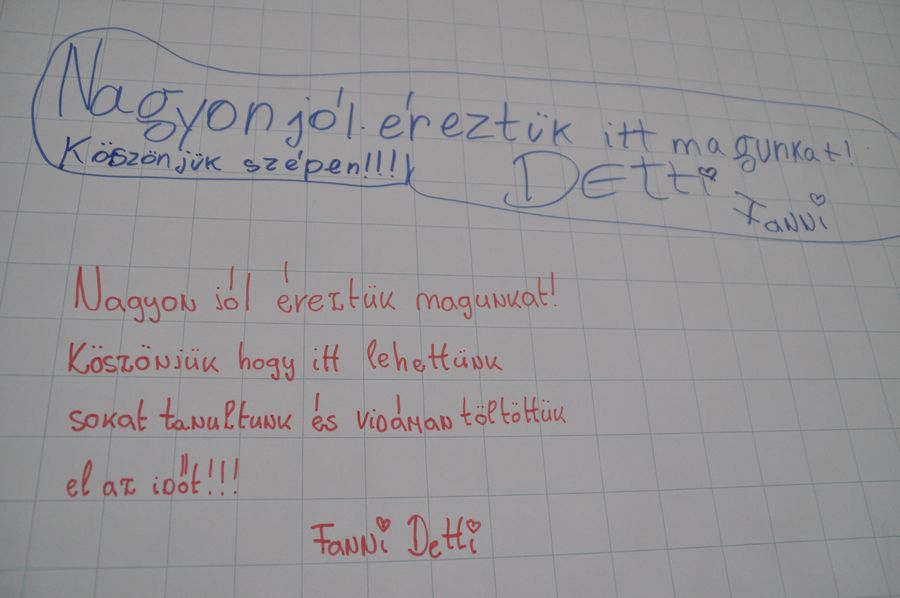 Nagyon jól éreztük itt magunkat!
Köszönjük szépen!!!
Detti
Fanni
Nagyon jól éreztük magunkat!
Köszönjük hogy itt lehettünk
sokat tanultunk és vidáman töltöttük
el az időt!!!
Fanni Detti